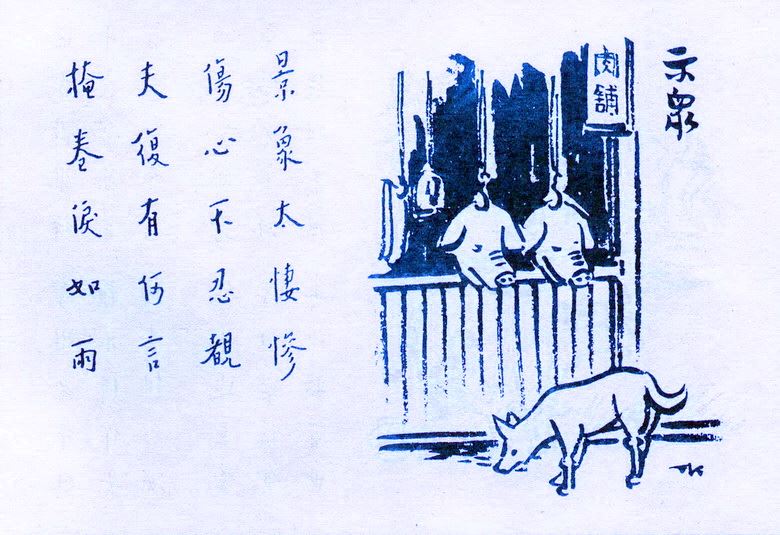 示眾
肉舖
景象太悽慘
傷心不忍觀
夫復有何言
掩卷淚如雨
TK